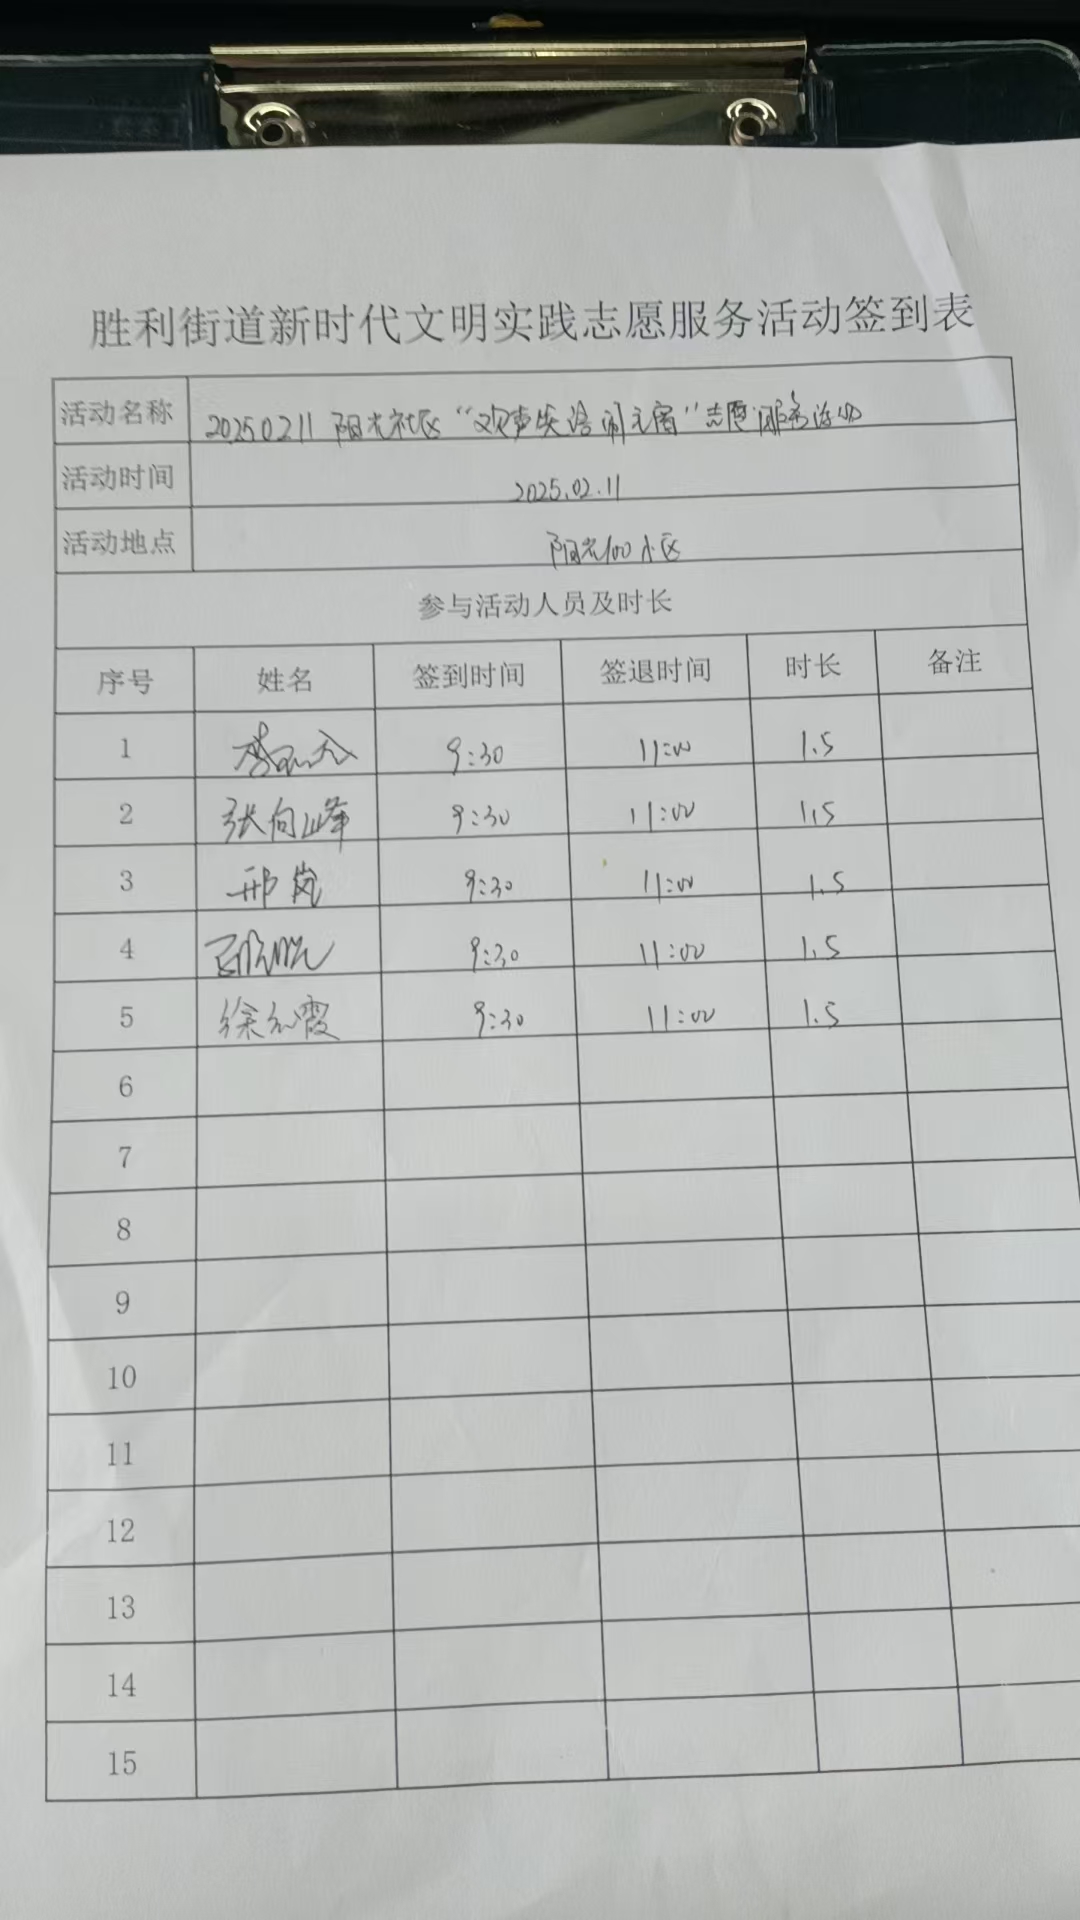 胜利街道新时代文明实践志愿服务活动签到表
活动名称 20250211 阳光社区“欢声笑语闹元宵”志愿服务活动
活动时间 2025.02.11
活动地点 阳光100小区
参与活动人员及时长
序号 姓名 签到时间 签退时间 时长 备注
1 9:30 11:00 1.5
2 张向峰 9:30 11:00 1.5
3 邢岚 9:30 11:00 1.5
4 9:30 11:00 1.5
5 徐红霞 9:30 11:00 1.5
6
7
8
9
10
11
12
13
14
15